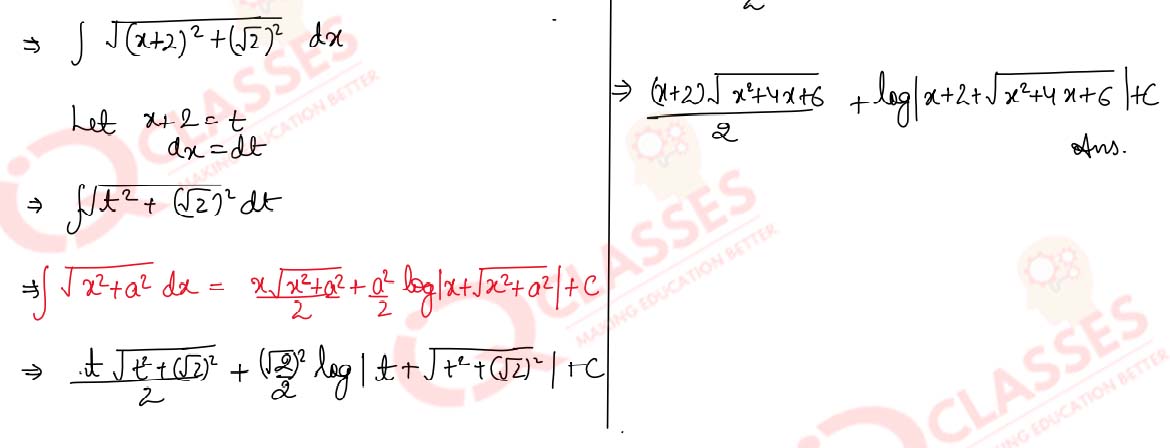 ⇒ ∫ √((x+2)² + (√2)²) dx
Let x+2 = t
dx = dt
⇒ ∫√(t² + (√2)²) dt
⇒ ∫ √(x²+a²) dx = x√(x²+a²)/2 + a²/2 log|x+√(x²+a²)| + C
⇒ t √(t²+(√2)²)/2 + (√2)²/2 log| t + √(t²+(√2)²) | + C
2
⇒ (x+2)√(x²+4x+6)/2 + log|x+2+√(x²+4x+6)| + C
Ans.
CLASSES
MAKING EDUCATION BETTER
CLASSES
MAKING EDUCATION BETTER
CLASSES
MAKING EDUCATION BETTER